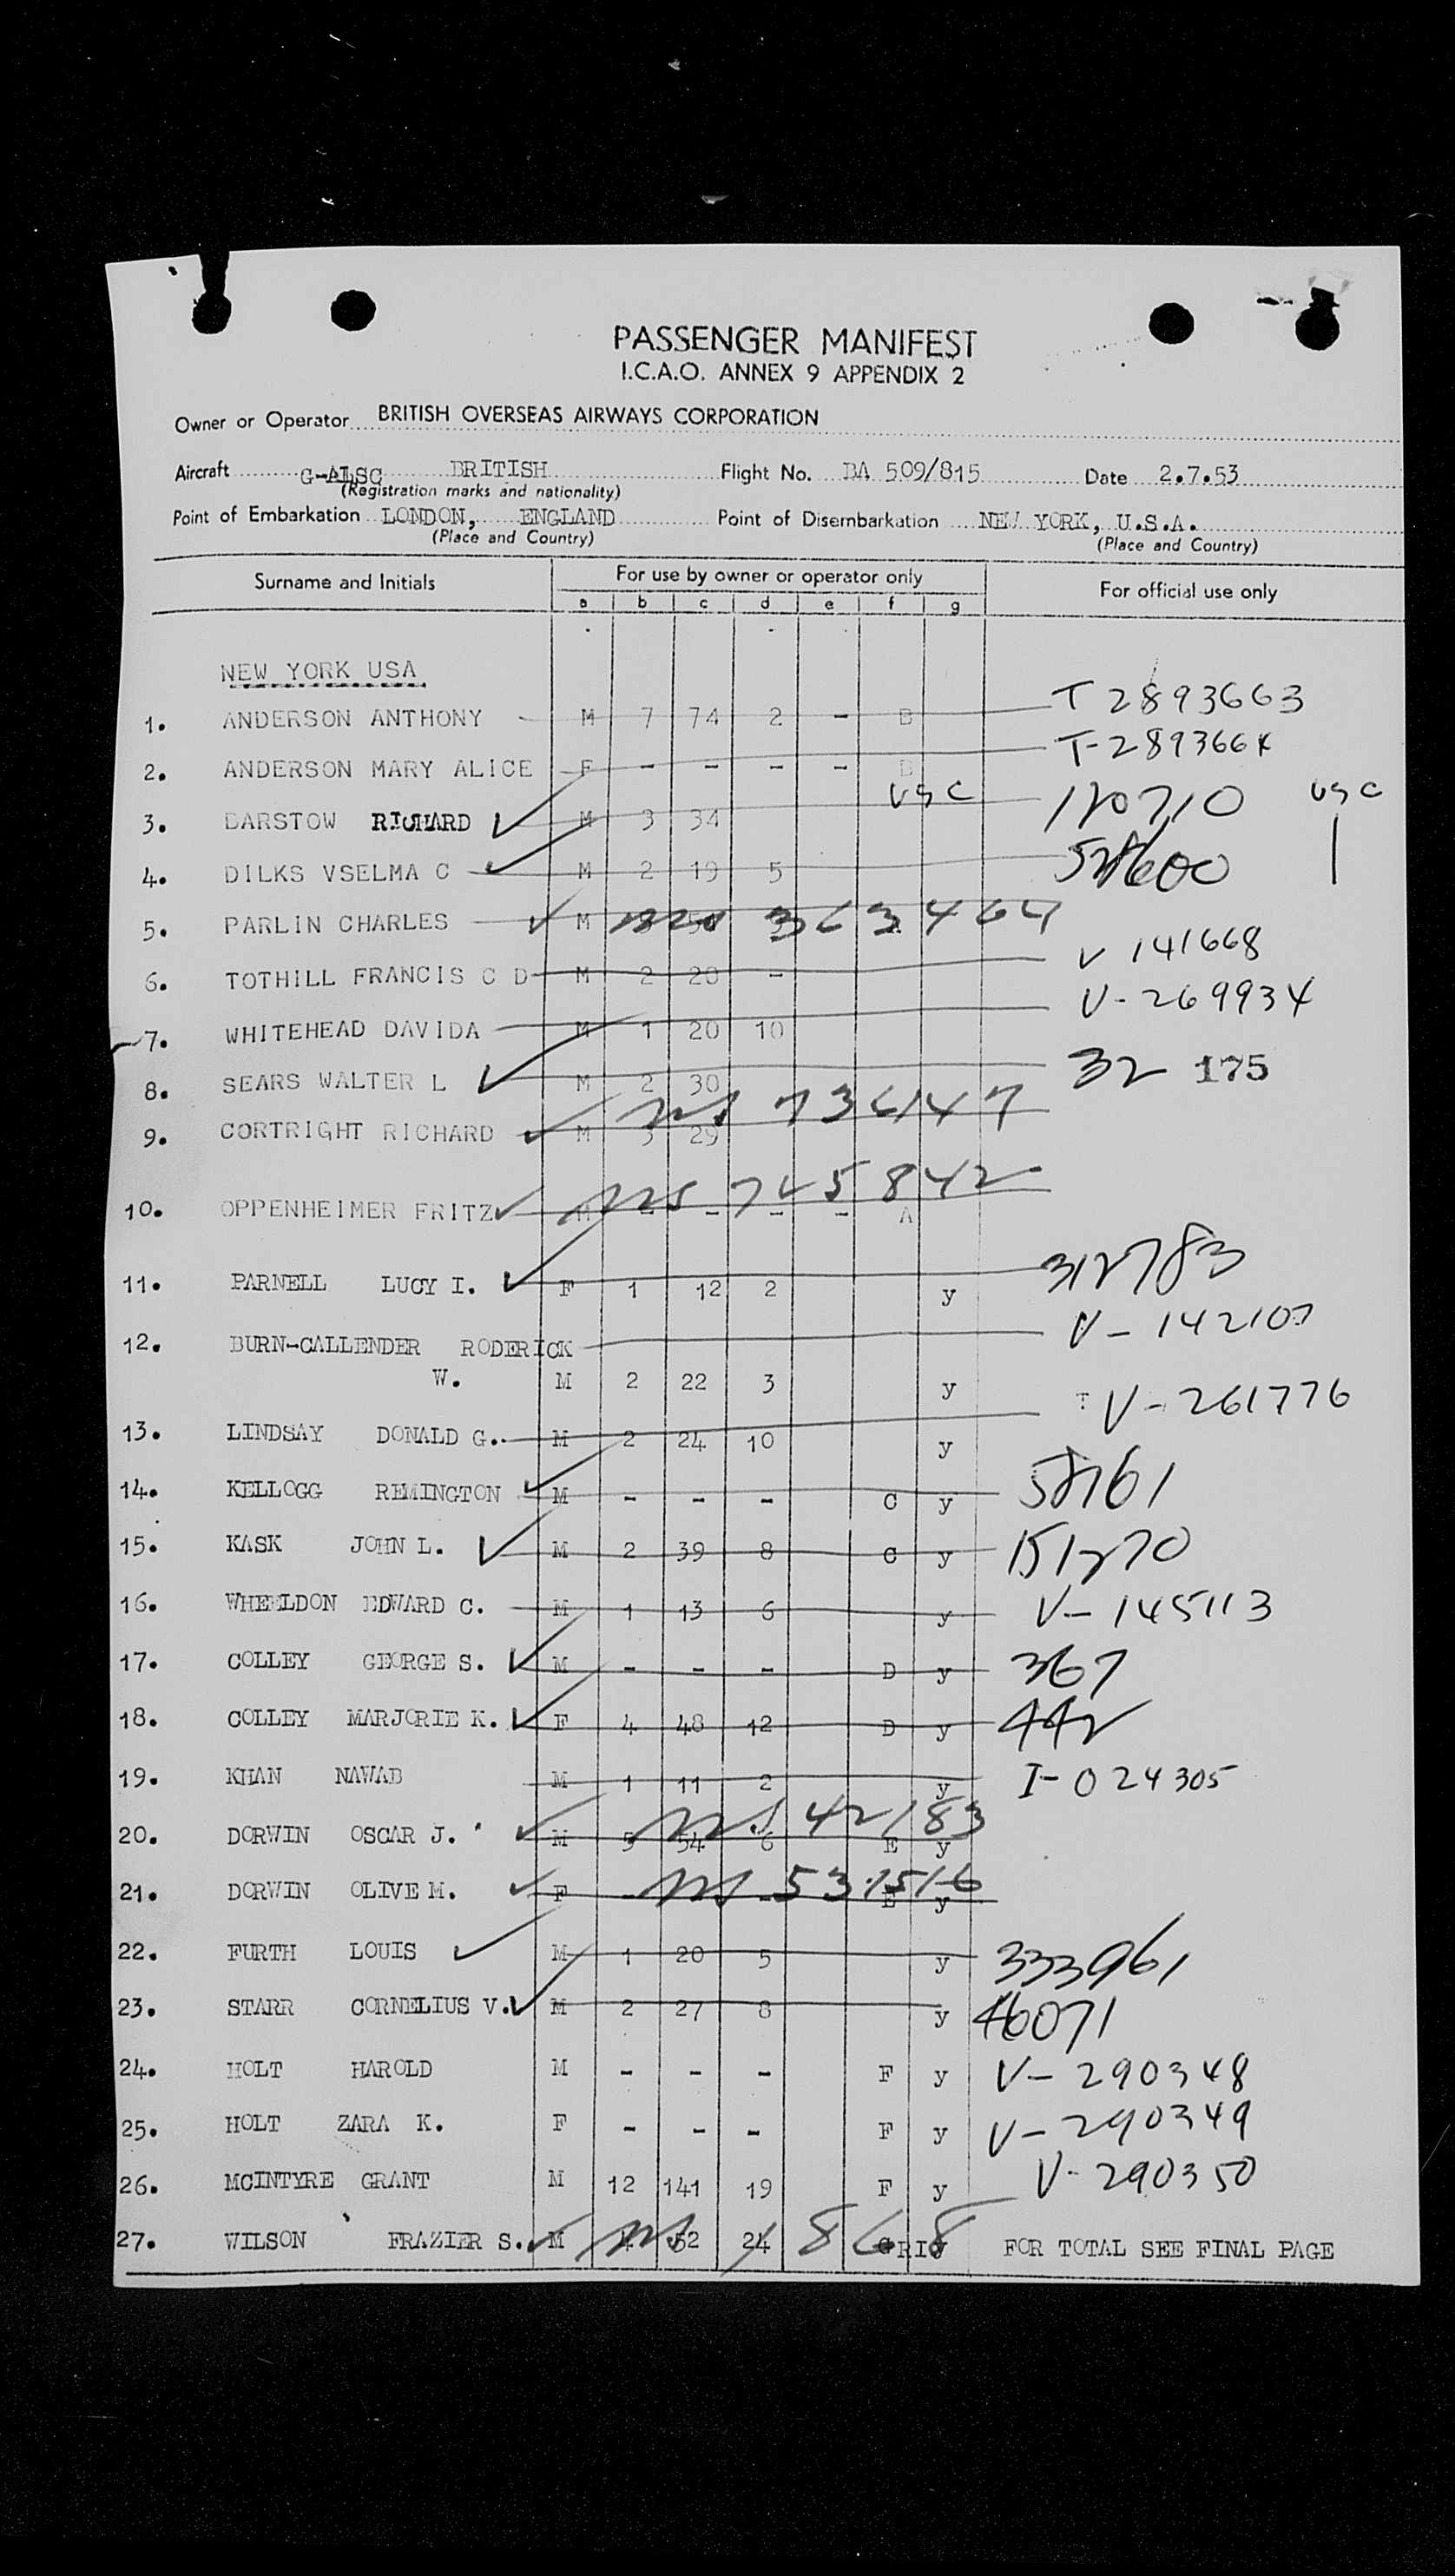 PASSENGER MANIFEST
I.C.A.O. ANNEX 9 APPENDIX 2
Owner or Operator BRITISH OVERSEAS AIRWAYS CORPORATION
Aircraft G-ALSC BRITISH Flight No. BA 509/815 Date 2.7.53
(Registration marks and nationality)
Point of Embarkation LONDON, ENGLAND Point of Disembarkation NEW YORK, U.S.A.
(Place and Country) (Place and Country)
Surname and Initials For use by owner or operator only For official use only
a b c d e f g
NEW YORK USA
1. ANDERSON ANTHONY M 7 74 2 - B T 2893663
2. ANDERSON MARY ALICE F - - - - B T-289366
3. BARSTOW RICHARD M 3 34 USC 120710 USC
4. DILKS VSELMA C M 2 19 5
5. PARLIN CHARLES M 363464
6. TOTHILL FRANCIS C D M 2 20 - V 141668
7. WHITEHEAD DAVIDA M 1 20 10 V-269934
8. SEARS WALTER L M 2 30 32 175
9. CORTRIGHT RICHARD M 3 29 736147
10. OPPENHEIMER FRITZ M - - - - A 745842
11. PARNELL LUCY I. F 1 12 2 y 312783
12. BURN-CALLENDER RODERICK V-142107
W. M 2 22 3 y
13. LINDSAY DONALD G. M 2 24 10 y V-261776
14. KELLOGG REMINGTON M - - - C y 58761
15. KASK JOHN L. M 2 39 8 C y 151270
16. WHEELDON EDWARD C. M 1 13 6 y V-145113
17. COLLEY GEORGE S. M - - - D y 367
18. COLLEY MARJORIE K. F 4 48 12 D y 442
19. KHAN NAWAB M 1 11 2 y I-024305
20. DORWIN OSCAR J. M 5 54 6 E y 42183
21. DORWIN OLIVE M. F - - E y 531516
22. FURTH LOUIS M 1 20 5 y 333961
23. STARR CORNELIUS V. M 2 27 8 y 46071
24. HOLT HAROLD M - - - F y V-290348
25. HOLT ZARA K. F - - - F y V-290349
26. MCINTYRE GRANT M 12 141 19 F y V-290350
27. WILSON FRAZIER S. M 4 52 24 FOR TOTAL SEE FINAL PAGE